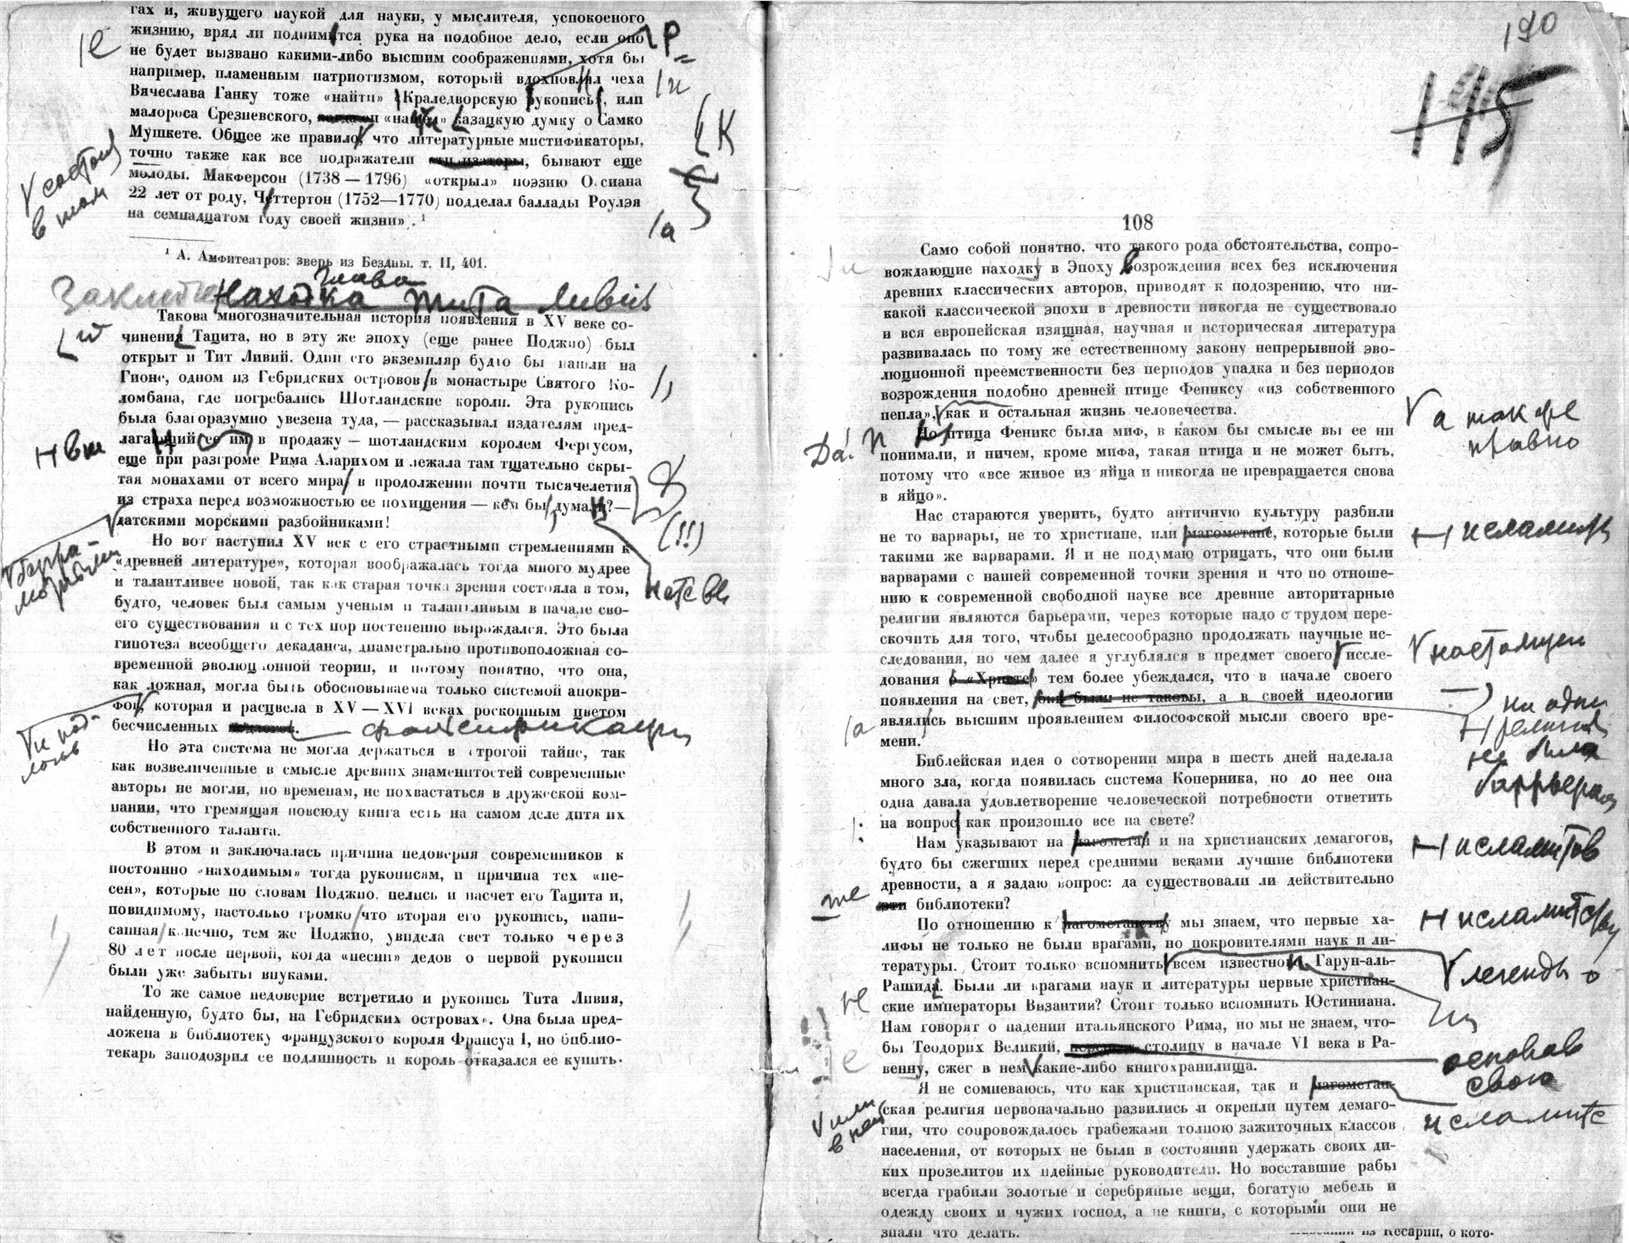 гах и, живущего наукой для науки, у мыслителя, успокоеного
жизнию, вряд ли поднимится рука на подобное дело, если оно
не будет вызвано какими-либо высшим соображениями, хотя бы
например, пламенным патриотизмом, который вдохновлял чеха
Вячеслава Ганку тоже «найти» Краледворскую рукопись, или
малороса Срезневского, казацкую думку о Самко
Мушкете. Общее же правило, что литературные мистификаторы,
точно также как все подражатели, бывают еще
молоды. Макферсон (1738 — 1796) «открыл» поэзию Оссиана
22 лет от роду, Чаттертон (1752—1770) подделал баллады Роулэя
на семнадцатом году своей жизни». ¹
состоит
в том
¹ А. Амфитеатров: зверь из Бездны, т. II, 401.
Глава
Находка Тита Ливия
Такова многозначительная история появления в XV веке со-
чинений Тацита, но в эту же эпоху (еще ранее Поджио) был
открыт и Тит Ливий. Один его экземпляр будто бы нашли на
Гионе, одном из Гебридских островов в монастыре Святого Ко-
ломбана, где погребались Шотландские короли. Эта рукопись
была благоразумно увезена туда, — рассказывал издателям пред-
лагавший ее им в продажу — шотландским королем Фергусом,
еще при разгроме Рима Аларихом и лежала там тщательно скры-
тая монахами от всего мира в продолжении почти тысячелетия
из страха перед возможностью ее похищения — кем бы, думали? —
датскими морскими разбойниками!
(!!)
Но вот наступил XV век с его страстными стремлениями к
«древней литературе», которая воображалась тогда много мудрее
и талантливее новой, так как старая точка зрения состояла в том,
будто, человек был самым ученым и талантливым в начале сво-
его существования и с тех пор постепенно вырождался. Это была
гипотеза всеобщего декаданса, диаметрально противоположная со-
временной эволюционной теории, и потому понятно, что она,
как ложная, могла быть обосновываема только системой апокри-
фов, которая и расцвела в XV — XVI веках роскошным цветом
бесчисленных фальсификаций
Но эта система не могла держаться в строгой тайне, так
как возвеличенные в смысле древних знаменитостей современные
авторы не могли, по временам, не похвастаться в дружеской ком-
пании, что гремящая повсюду книга есть на самом деле дитя их
собственного таланта.
В этом и заключалась причина недоверия современников к
постоянно «находимым» тогда рукописям, и причина тех «пе-
сен», которые по словам Поджио, пелись и насчет его Тацита и,
повидимому, настолько громко что вторая его рукопись, напи-
санная конечно, тем же Поджио, увидела свет только через
80 лет после первой, когда «песни» дедов о первой рукописи
были уже забыты внуками.
То же самое недоверие встретило и рукопись Тита Ливия,
найденную, будто бы, на Гебридских островах». Она была пред-
ложена в библиотеку французского короля Франсуа I, но библио-
текарь заподозрил ее подлинность и король отказался ее купить.
190
115
108
Само собой понятно, что такого рода обстоятельства, сопро-
вождающие находку в Эпоху Возрождения всех без исключения
древних классических авторов, приводят к подозрению, что ни-
какой классической эпохи в древности никогда не существовало
и вся европейская изящная, научная и историческая литература
развивалась по тому же естественному закону непрерывной эво-
люционной преемственности без периодов упадка и без периодов
возрождения подобно древней птице Фениксу «из собственного
пепла», как и остальная жизнь человечества.
а также
право
Да! Но птица Феникс была миф, в каком бы смысле вы ее ни
понимали, и ничем, кроме мифа, такая птица и не может быть,
потому что «все живое из яйца и никогда не превращается снова
в яйцо».
Нас стараются уверить, будто античную культуру разбили
не то варвары, не то христиане, или магометане, которые были
такими же варварами. Я и не подумаю отрицать, что они были
варварами с нашей современной точки зрения и что по отноше-
нию к современной свободной науке все древние авторитарные
религии являются барьерами, через которые надо с трудом пере-
скочить для того, чтобы целесообразно продолжать научные ис-
следования, но чем далее я углублялся в предмет своего иссле-
дования о «Христе» тем более убеждался, что в начале своего
появления на свет, они были не таковы, а в своей идеологии
являлись высшим проявлением философской мысли своего вре-
мени.
ни одна
религия
не была
баррьером
Библейская идея о сотворении мира в шесть дней наделала
много зла, когда появилась система Коперника, но до нее она
одна давала удовлетворение человеческой потребности ответить
на вопрос как произошло все на свете?
Нам указывают на магометан и на христианских демагогов,
будто бы сжегших перед средними веками лучшие библиотеки
древности, а я задаю вопрос: да существовали ли действительно
эти библиотеки?
исламитов
По отношению к магометанству мы знаем, что первые ха-
лифы не только не были врагами, но покровителями наук и ли-
тературы. Стоит только вспомнить всем известного Гарун-аль-
Рашида. Были ли врагами наук и литературы первые христиан-
ские императоры Византии? Стоит только вспомнить Юстиниана.
Нам говорят о падении итальянского Рима, но мы не знаем, что-
бы Теодорих Великий, столицу в начале VI века в Ра-
венну, сжег в нем какие-либо книгохранилища.
исламитству
легенды о
основав
свою
Я не сомневаюсь, что как христианская, так и магометан-
ская религия первоначально развились и окрепли путем демаго-
гии, что сопровождалось грабежами толпою зажиточных классов
населения, от которых не были в состоянии удержать своих ди-
ких прозелитов их идейные руководители. Но восставшие рабы
всегда грабили золотые и серебряные вещи, богатую мебель и
одежду своих и чужих господ, а не книги, с которыми они не
знали что делать.
или
в ней
исламитс
из Кесарии, о кото-